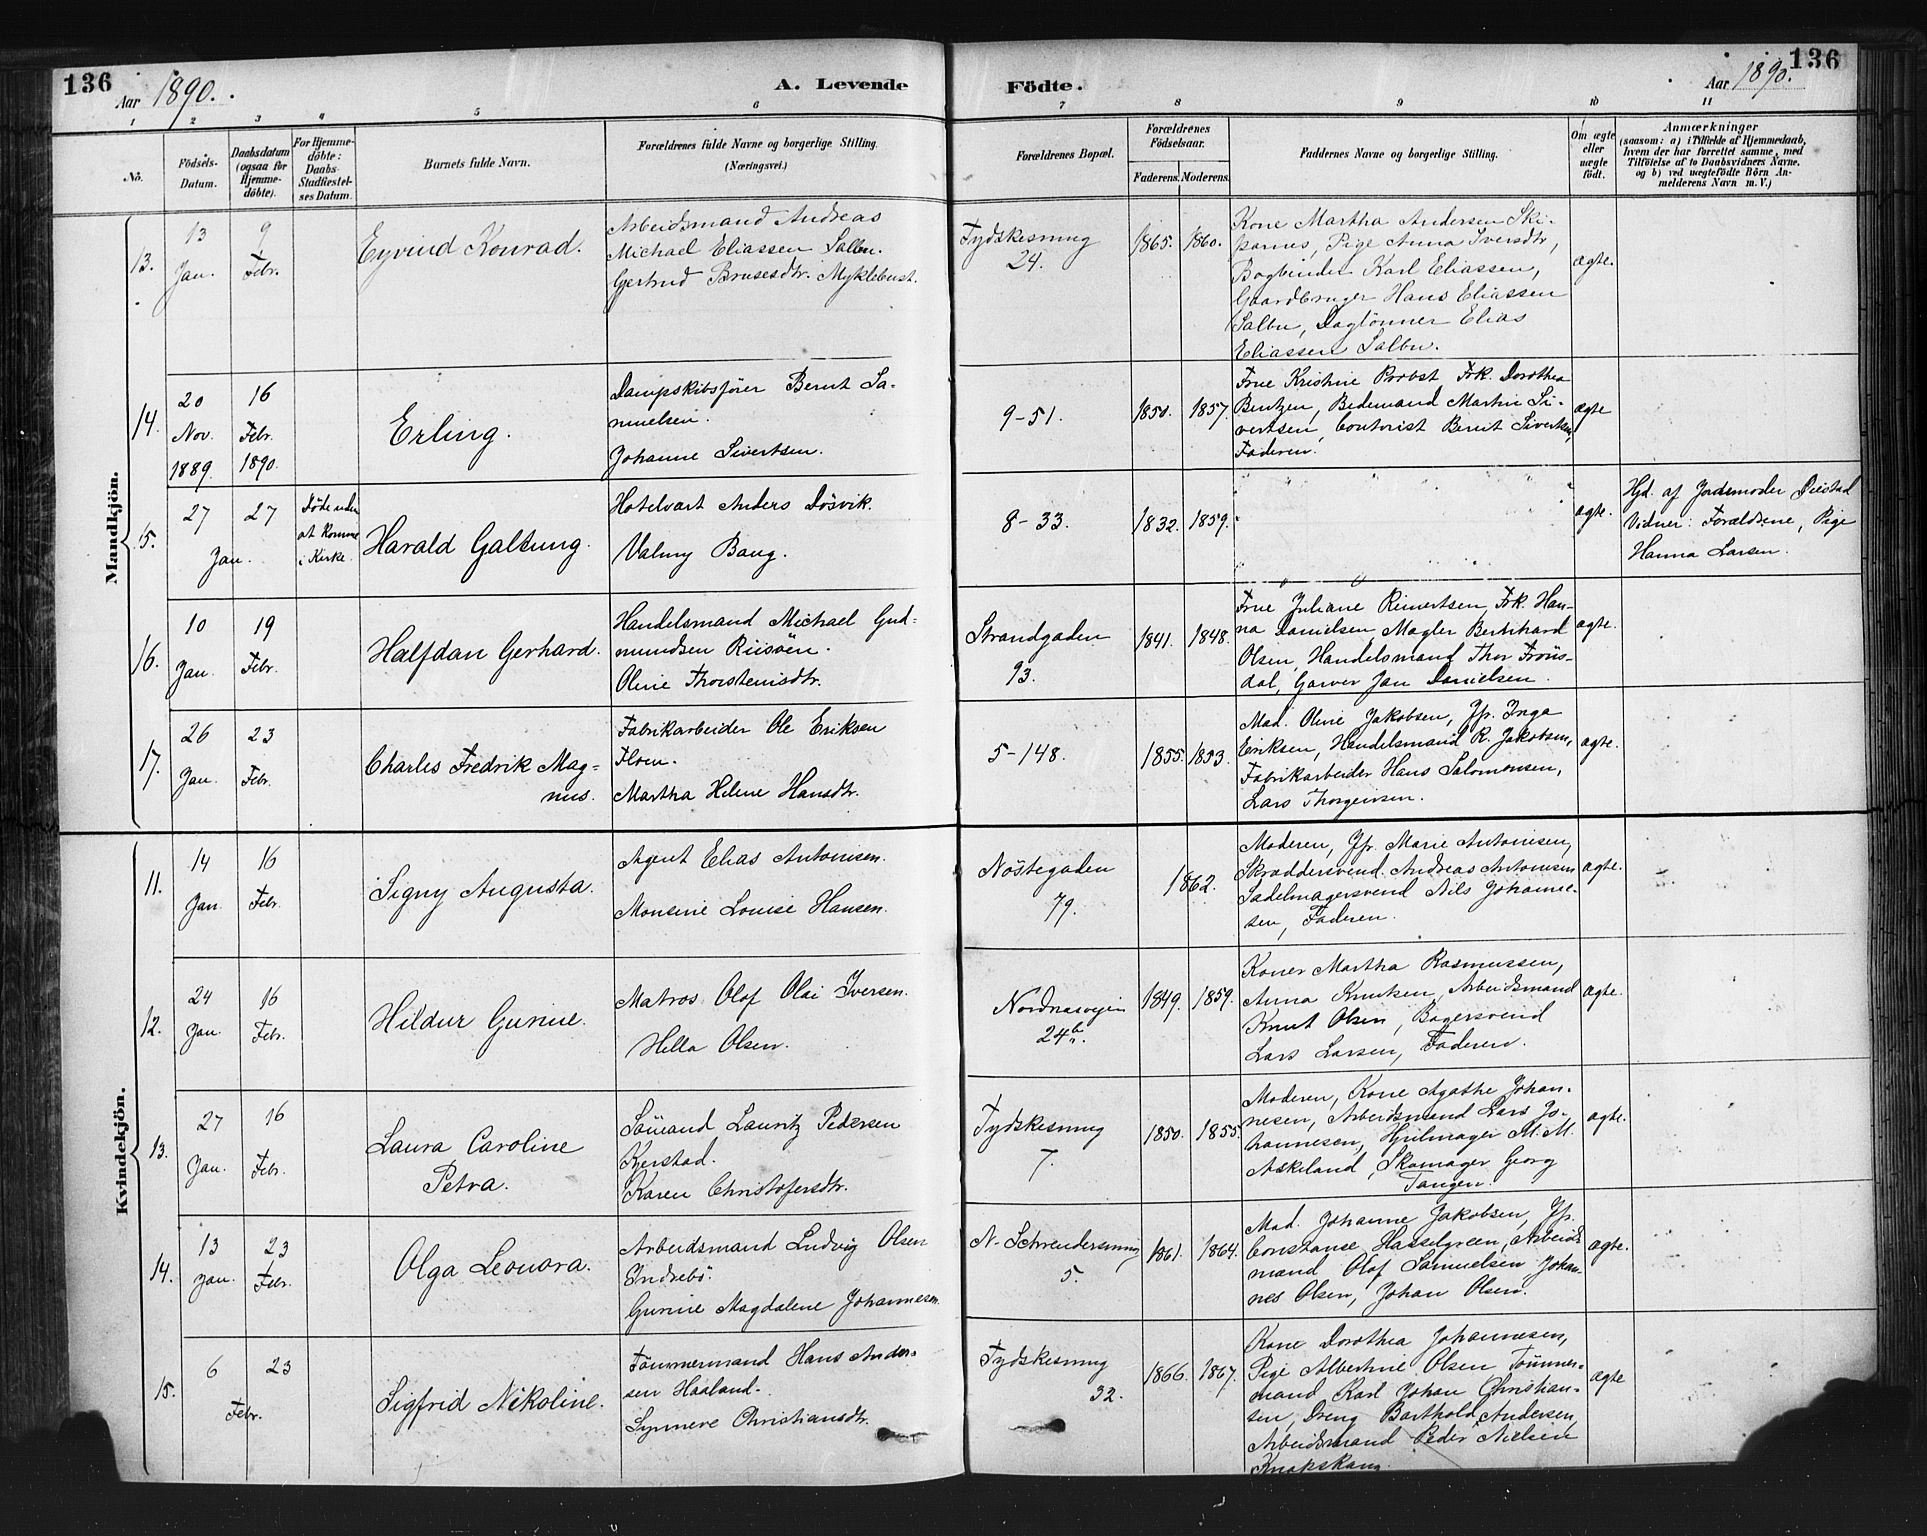 136
Aar 1890.
A. Levende
Födte.
Aar 1890.
136
1 2 3 4 5 6 7 8 9 10 11
No.
Födsels-
Datum.
Daabsdatum
(ogsaa for
Hjemme-
döbte).
For Hjemme-
döbte:
Daabs-
Stadfæstel-
ses Datum.
Barnets fulde Navn.
Forældrenes fulde Navne og borgerlige Stilling.
(Næringsvei.)
Forældrenes Bopæl.
Forældrenes
Födselsaar.
Faderens. Moderens.
Faddernes Navne og borgerlige Stilling.
Om ægte
eller
uægte
födt.
Anmærkninger
(saasom: a) i Tilfælde af Hjemmedaab,
hvem der har forrettet samme, med
Tilföielse af to Daabsvidners Navne,
og b) ved uægtefödte Börn An-
melderens Navn m. V.)
Mandkjön.
13.
13
Jan.
9
Febr.
Eyvind Konrad.
Arbeidsmand Andreas
Michael Eliassen Salbu.
Gjertrud Brusesdtr. Myklebust.
Tydskesmug
24.
1865. 1860.
Kone Martha Andersen Ski-
parnes, Pige Anna Iversdtr,
Bogbinder Karl Eliassen,
Gaardbruger Hans Eliassen
Salbu, Daglönner Elias
Eliassen Salbu.
ægte.
14.
20
Nov.
1889.
16
Febr.
1890.
Erling.
Dampskibsfører Bernt Sa-
muelsen.
Johanne Sivertsen.
9-51.
1850. 1857.
Frue Kristine Probst Frk. Dorothea
Bentzen, Bedemand Martin Si-
vertsen, Contorist Bernt Sivertsen,
Faderen.
ægte
15.
27
27
Jan.
at komme
i Kirke.
Harald Galtung.
Hotelvært Anders Døsvik.
Valmy Bang.
8-33.
1832. 1859.
ægte.
Hjd. af Jordemoder
Vidner: Forældrene, Pige
Hanna Larsen.
16.
10
Jan.
19
Febr.
Halfdan Gerhard.
Handelsmand Michael Gud-
mundsen Riisöen.
Oline Thorsteinsdtr.
Strandgaden
93.
1841. 1848.
Frue Juliane Reinertsen, Frk. Han-
na Danielsen, Mægler Bernhard
Olsen, Handelsmand Thor Fröis-
dal, Garver Jan Danielsen.
ægte.
17.
26
Jan.
23
Febr.
Charles Fredrik Mag-
nus.
Fabrikarbeider Ole Eriksen
Floen.
Martha Helene Hansdtr.
5-148.
1855. 1853.
Mad. Oline Jakobsen, Jfr. Inga
Eriksen, Handelsmand R. Jakobsen,
Fabrikarbeider Hans Salomonsen,
Lars Thorgeirsen.
ægte.
Kvindekjön.
11.
14
Jan.
16
Febr.
Signy Augusta.
Agent Elias Antonisen.
Monsine Louise Hansen.
Nöstegaden
79.
1862.
Moderen, Jfr. Marie Antonisen,
Skræddersvend Andreas Antonisen
Sadelmagersvend Nils Johanne-
sen, Faderen.
ægte.
12.
24
Jan.
16
Febr.
Hildur Gurine.
Matros Olaf Olai Iversen.
Hella Olsen.
Nordnæsveien
24b.
1849. 1859.
Koner Martha Rasmussen,
Anna Knutsen, Arbeidsmand
Knut Olsen, Bagersvend
Lars Larsen, Faderen.
ægte.
13.
27
Jan.
16
Febr.
Laura Caroline
Petra.
Sömand Lauritz Pedersen
Kjerstad.
Karen Christofersdtr.
Tydskesmug
7.
1850. 1855.
Moderen, Kone Agathe Johan-
nesen, Arbeidsmand Lars Jo-
hannesen, Hjulmager M. M.
Askeland, Skomager Georg
Tangen.
ægte.
14.
13
Jan.
23
Febr.
Olga Leonora.
Arbeidsmand Ludvig Olsen
Indrebö.
Gurine Magdalene Johannesen.
N. Schreudersmug
5.
1861. 1864.
Mad. Johanne Jakobsen, Jfr.
Constanse Hasselgreen, Arbeids-
mand Olaf Samuelsen Johan-
nes Olsen, Johan Olsen.
ægte.
15.
6
23
Febr.
Sigfrid Nikoline.
Tömmermand Hans Ander-
sen Haaland.
Synneve Christiansdtr.
Tydskesmug
32.
1866. 1867.
Kone Dorothea Johannesen,
Pige Albertine Olsen Tömmer-
mand Karl Johan Christian-
sen, Dreng Barthold Andersen,
Arbeidsmand Peder Nielsen
Knapskaug.
ægte